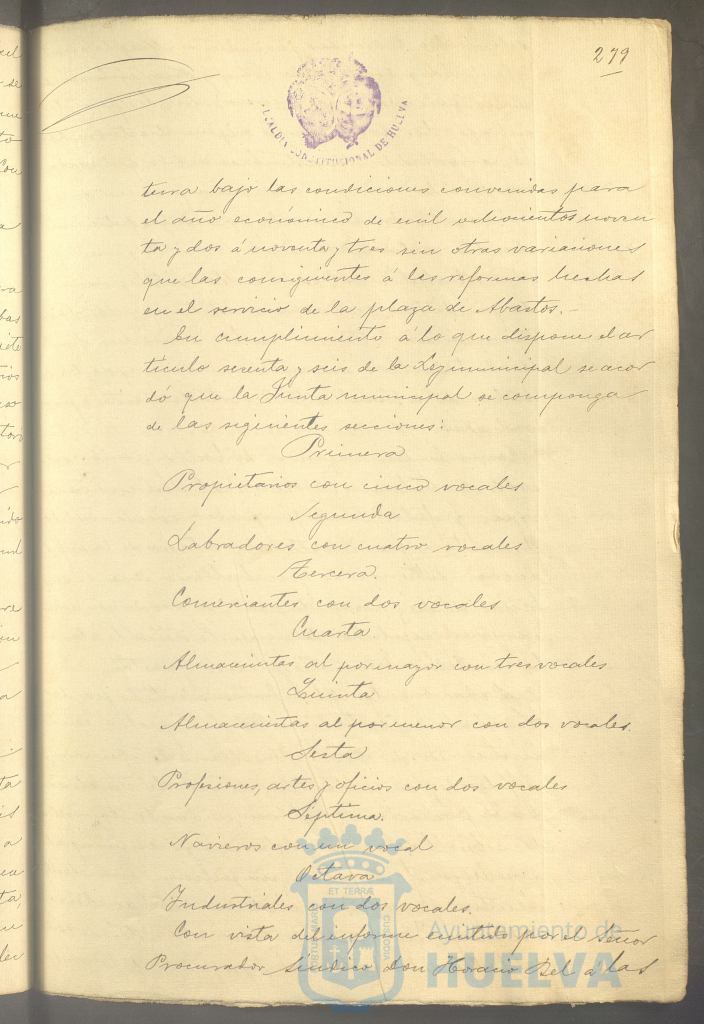 279
ALCALDIA CONSTITUCIONAL DE HUELVA
terra bajo las condiciones convenidas para
el año económico de mil ochocientos noven
ta y dos á noventa y tres sin otras variaciones
que las consiguientes á las reformas hechas
en el servicio de la plaza de Abastos.-
En cumplimiento á lo que dispone el ar
tículo sesenta y seis de la Ley municipal se acor
dó que la Junta municipal se componga
de las siguientes secciones:
Primera
Propietarios con cinco vocales
Segunda
Labradores con cuatro vocales
Tercera.
Comerciantes con dos vocales
Cuarta
Almacenistas al por mayor con tres vocales
Quinta
Almacenistas al por menor con dos vocales.
Sesta
Profesiones, artes y oficios con dos vocales
Séptima.
Navieros con un vocal
Octava
Industriales con dos vocales.
Con vista del informe emitido por el Señor
Procurador Síndico Don Horacio Bel a las
PORTUS MARIS ET TERRÆ CUSTODIA
Ayuntamiento de
HUELVA